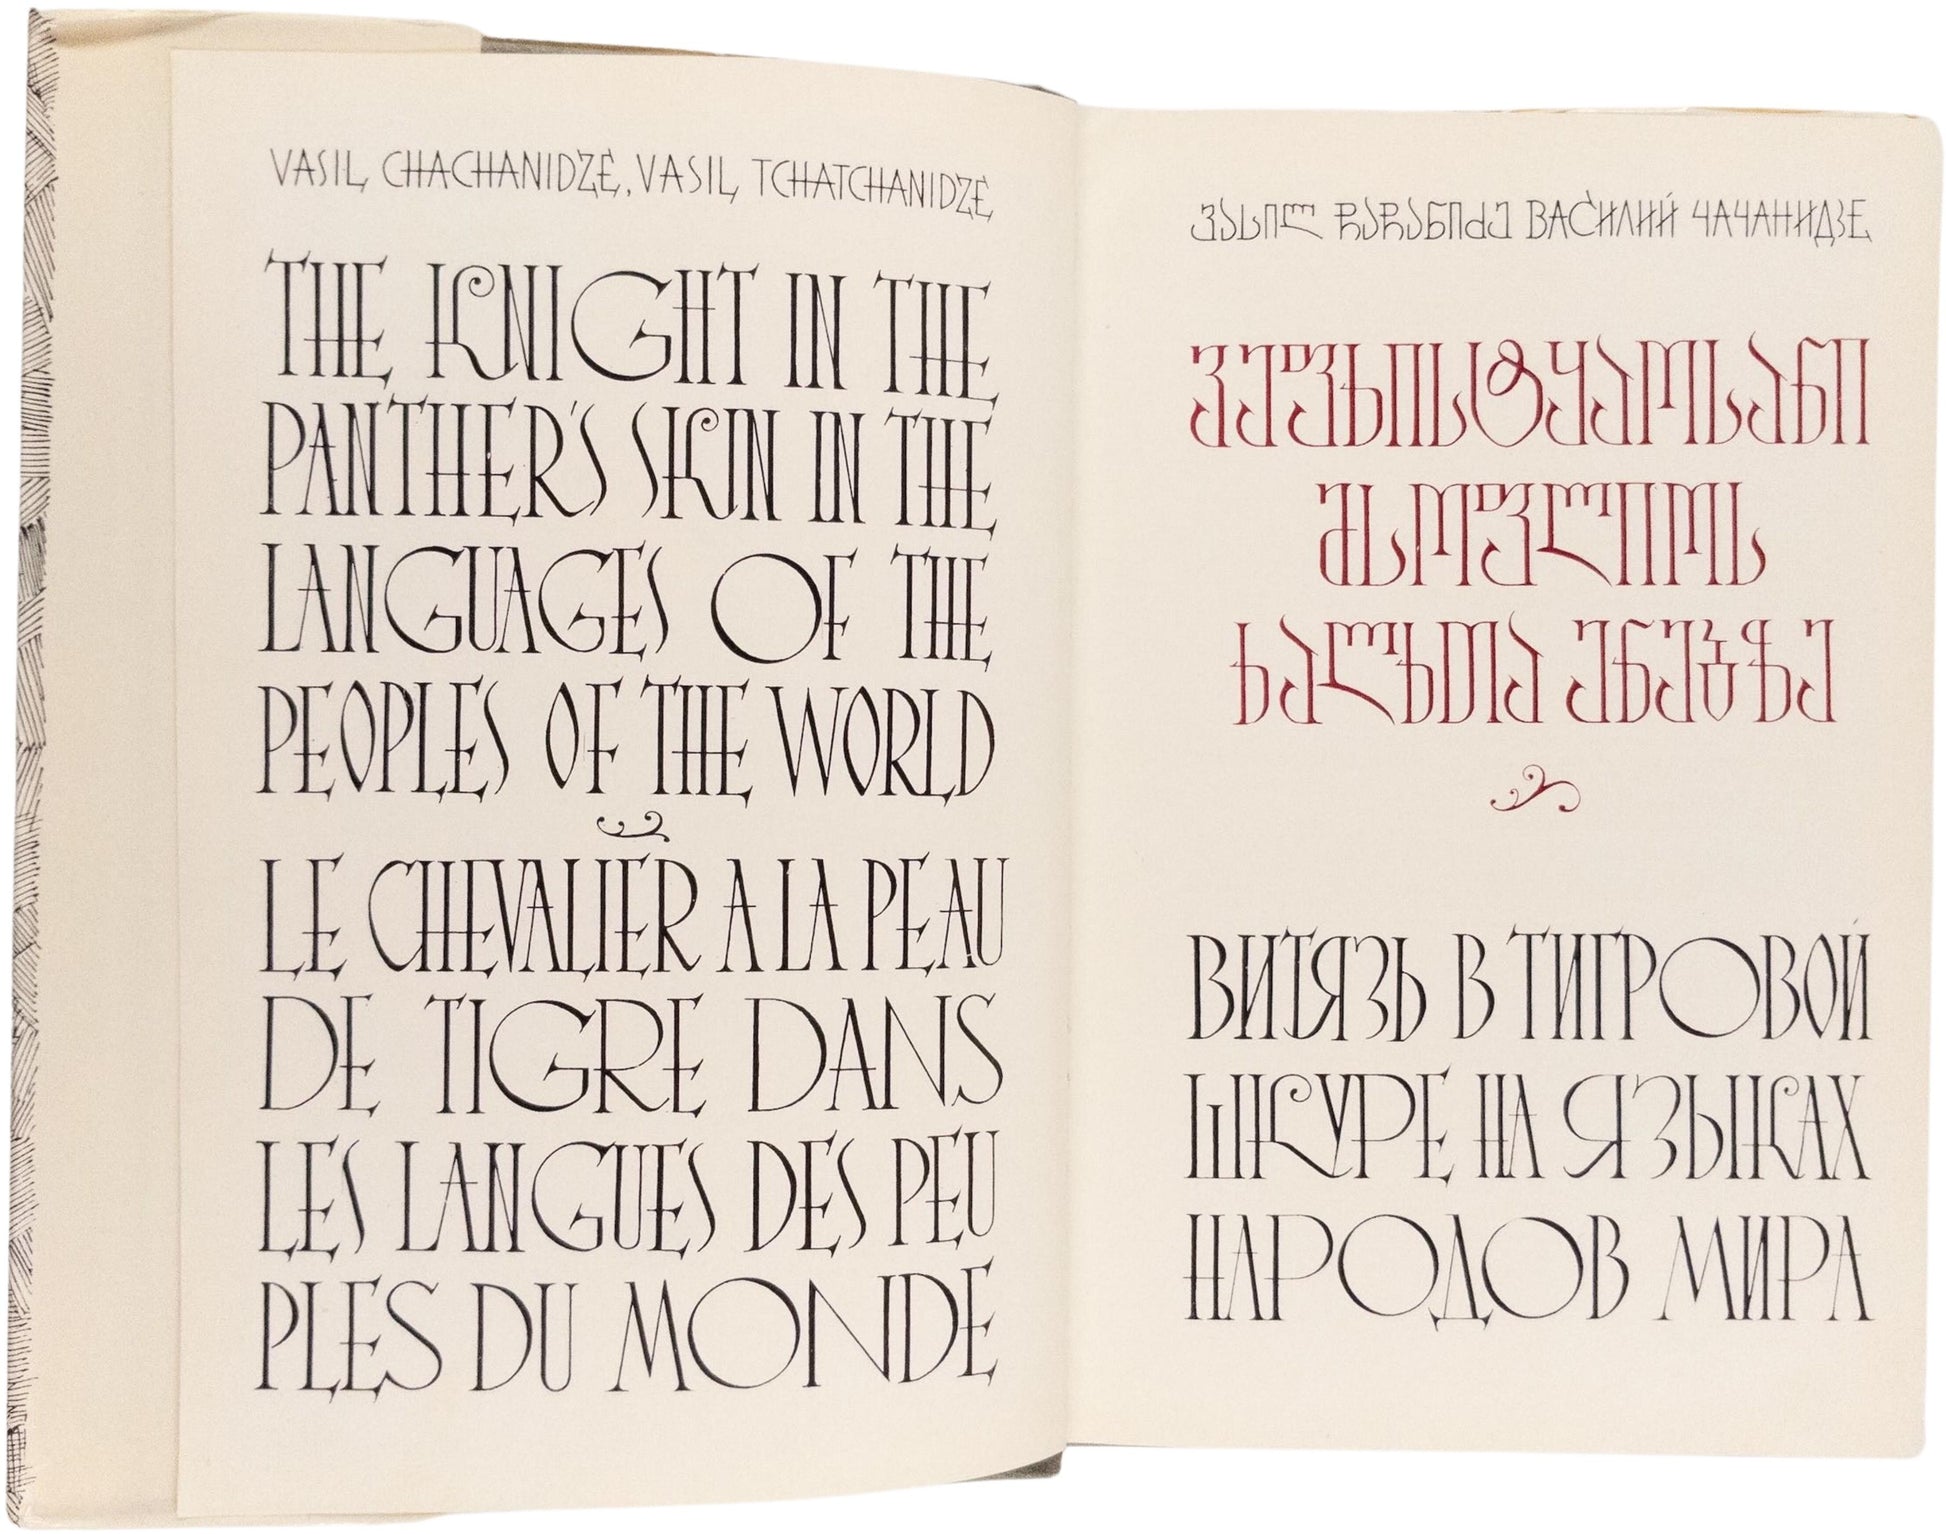 VASIL CHACHANIDZE, VASIL TCHATCHANIDZE
THE KNIGHT IN THE
PANTHER'S SKIN IN THE
LANGUAGES OF THE
PEOPLES OF THE WORLD
LE CHEVALIER A LA PEAU
DE TIGRE DANS
LES LANGUES DES PEU
PLES DU MONDE
ვასილ ჩაჩანიძე ВАСИЛИЙ ЧАЧАНИДЗЕ
ვეფხისტყაოსანი
მსოფლიოს
ხალხთა ენებზე
ВИТЯЗЬ В ТИГРОВОЙ
ШКУРЕ НА ЯЗЫКАХ
НАРОДОВ МИРА